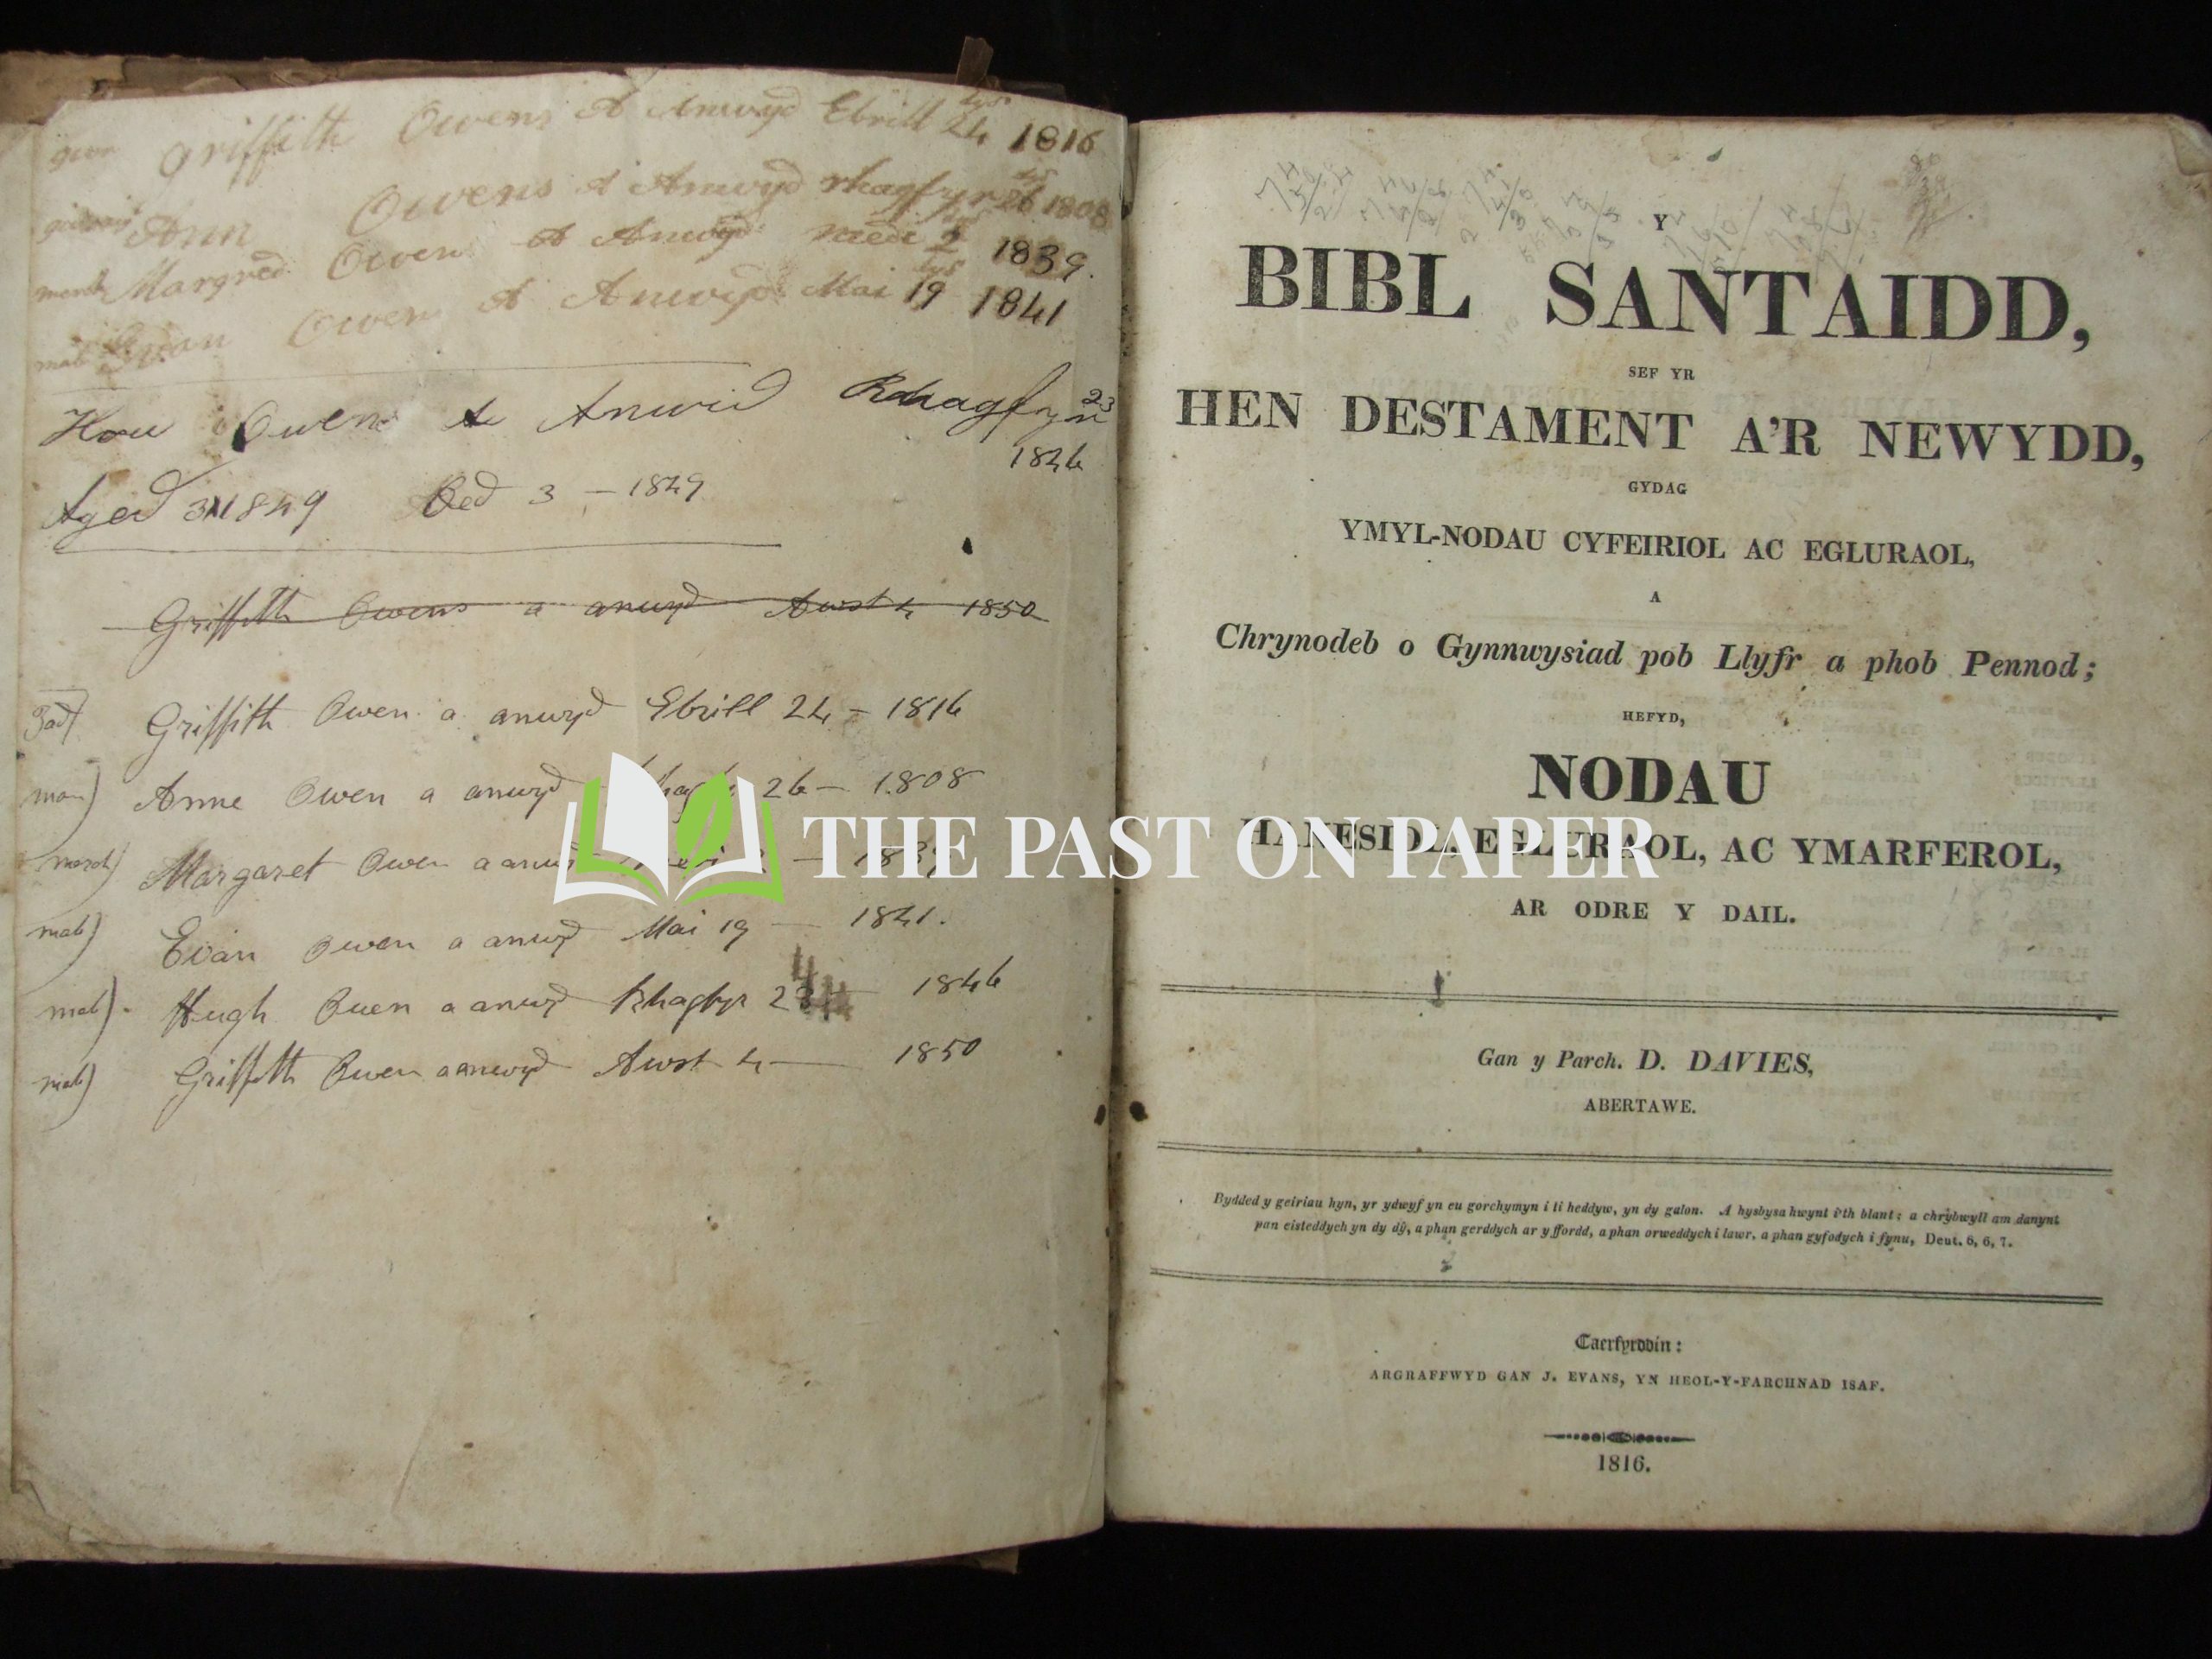 gwr Griffith Owens A Anwyd Ebrill 24 1816
Ann Owens A Anwyd rhagfyr 26 1808
merch Margred Owen A Anwyd medi 2 1839.
mab Evan Owen A Anwyd Mai 19 1841
How Owens A Anwid Rhagfyr 23
1846
Aged 3 1849 Oed 3 - 1849
Griffith Owens a anwyd Awst 4 1850
Tad) Griffith Owen a anwyd Ebrill 24 - 1816
mam) Anne Owen a anwyd 26 - 1808
merch) Margaret Owen a anwyd
mab) Evan Owen a anwyd Mai 19 — 1841.
mab) Hugh Owen a anwyd Rhagfyr 1846
mab) Griffith Owen a anwyd Awst 4 — 1850
Y
BIBL SANTAIDD,
SEF YR
HEN DESTAMENT A'R NEWYDD,
GYDAG
YMYL-NODAU CYFEIRIOL AC EGLURAOL,
A
Chrynodeb o Gynnwysiad pob Llyfr a phob Pennod;
HEFYD,
NODAU
HANESIOL, EGLURAOL, AC YMARFEROL,
AR ODRE Y DAIL.
Gan y Parch. D. DAVIES,
ABERTAWE.
Bydded y geiriau hyn, yr ydwyf yn eu gorchymyn i ti heddyw, yn dy galon. A hysbysa hwynt i'th blant; a chrybwyll am danynt
pan eisteddych yn dy dŷ, a phan gerddych ar y ffordd, a phan orweddych i lawr, a phan gyfodych i fynu, Deut. 6, 6, 7.
Caerfyrddin:
ARGRAFFWYD GAN J. EVANS, YN HEOL-Y-FARCHNAD ISAF.
1816.
THE PAST ON PAPER